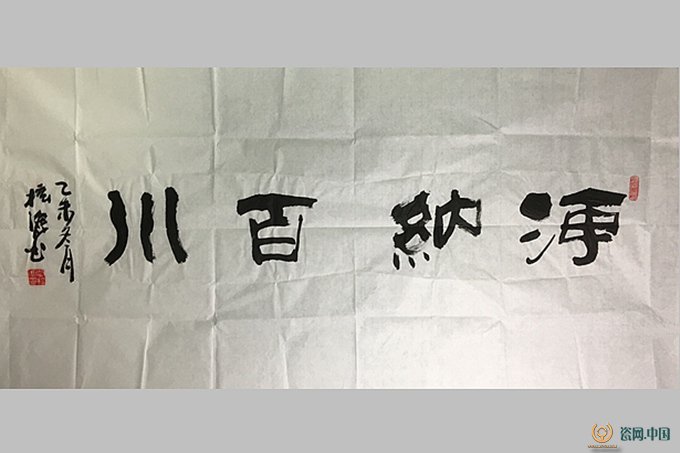 海纳百川
乙未冬月
瓷网.中国